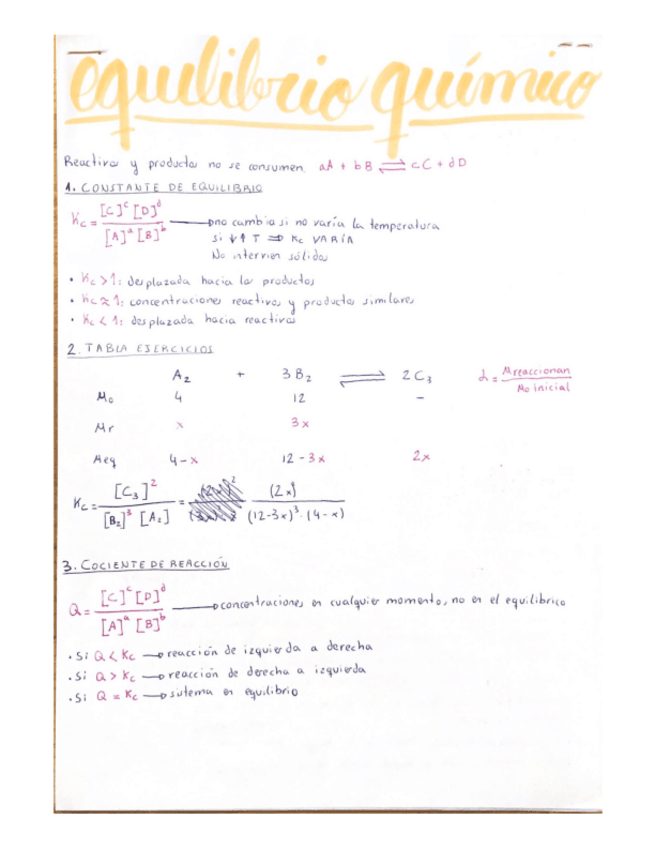 equilibrio químico
Reactivos y productos no se consumen. aA + bB ⇌ cC + dD
1. CONSTANTE DE EQUILIBRIO
Kc = [C]^c [D]^d / [A]^a [B]^b → no cambia si no varía la temperatura
Si ↓↑ T ⇒ Kc VARÍA
No intervien sólidos
• Kc > 1: desplazada hacia los productos
• Kc ≈ 1: concentraciones reactivos y productos similares
• Kc < 1: desplazada hacia reactivos
2. TABLA EJERCICIOS
A2 + 3B2 ⇌ 2C3 α = Mreaccionan / Mo inicial
Mo 4 12 –
Mr x 3x
Meq 4-x 12-3x 2x
Kc = [C3]^2 / [B2]^3 [A2] = (2x)^2 / (12-3x)^3 · (4-x)
3. COCIENTE DE REACCIÓN
Q = [C]^c [D]^d / [A]^a [B]^b → concentraciones en cualquier momento, no en el equilibrico
• Si Q < Kc → reacción de izquierda a derecha
• Si Q > Kc → reacción de derecha a izquierda
• Si Q = Kc → sistema en equilibrio